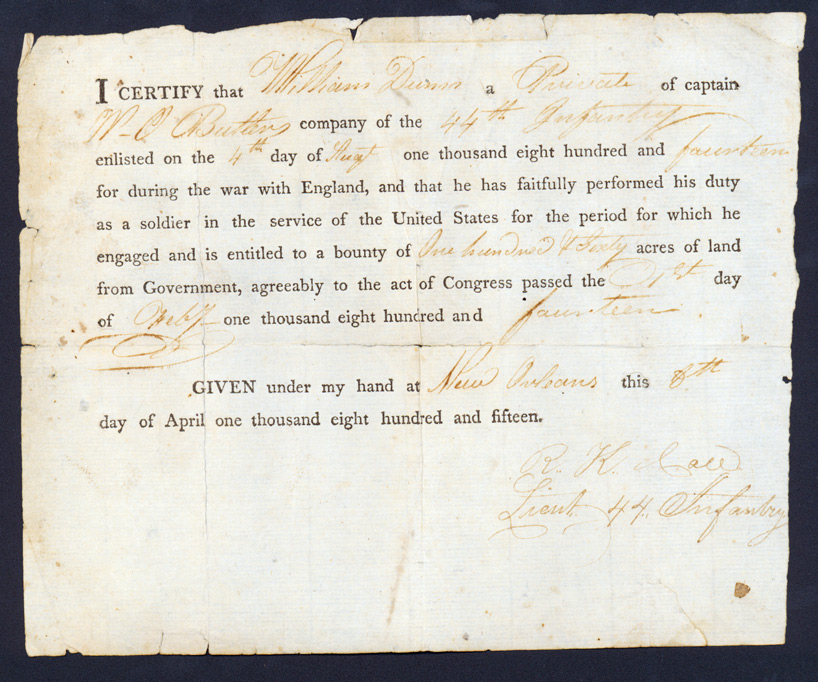 I CERTIFY that William Dunn a Private of captain
W. O. Butlers company of the 44th Infantry
enlisted on the 4th day of Augt one thousand eight hundred and fourteen
for during the war with England, and that he has faithfully performed his duty
as a soldier in the service of the United States for the period for which he
engaged and is entitled to a bounty of One hundred & Sixty acres of land
from Government, agreeably to the act of Congress passed the 1st day
of Feby one thousand eight hundred and fourteen
GIVEN under my hand at New Orleans this 8th
day of April one thousand eight hundred and fifteen.
R. K. Call
Lieut 44. Infantry